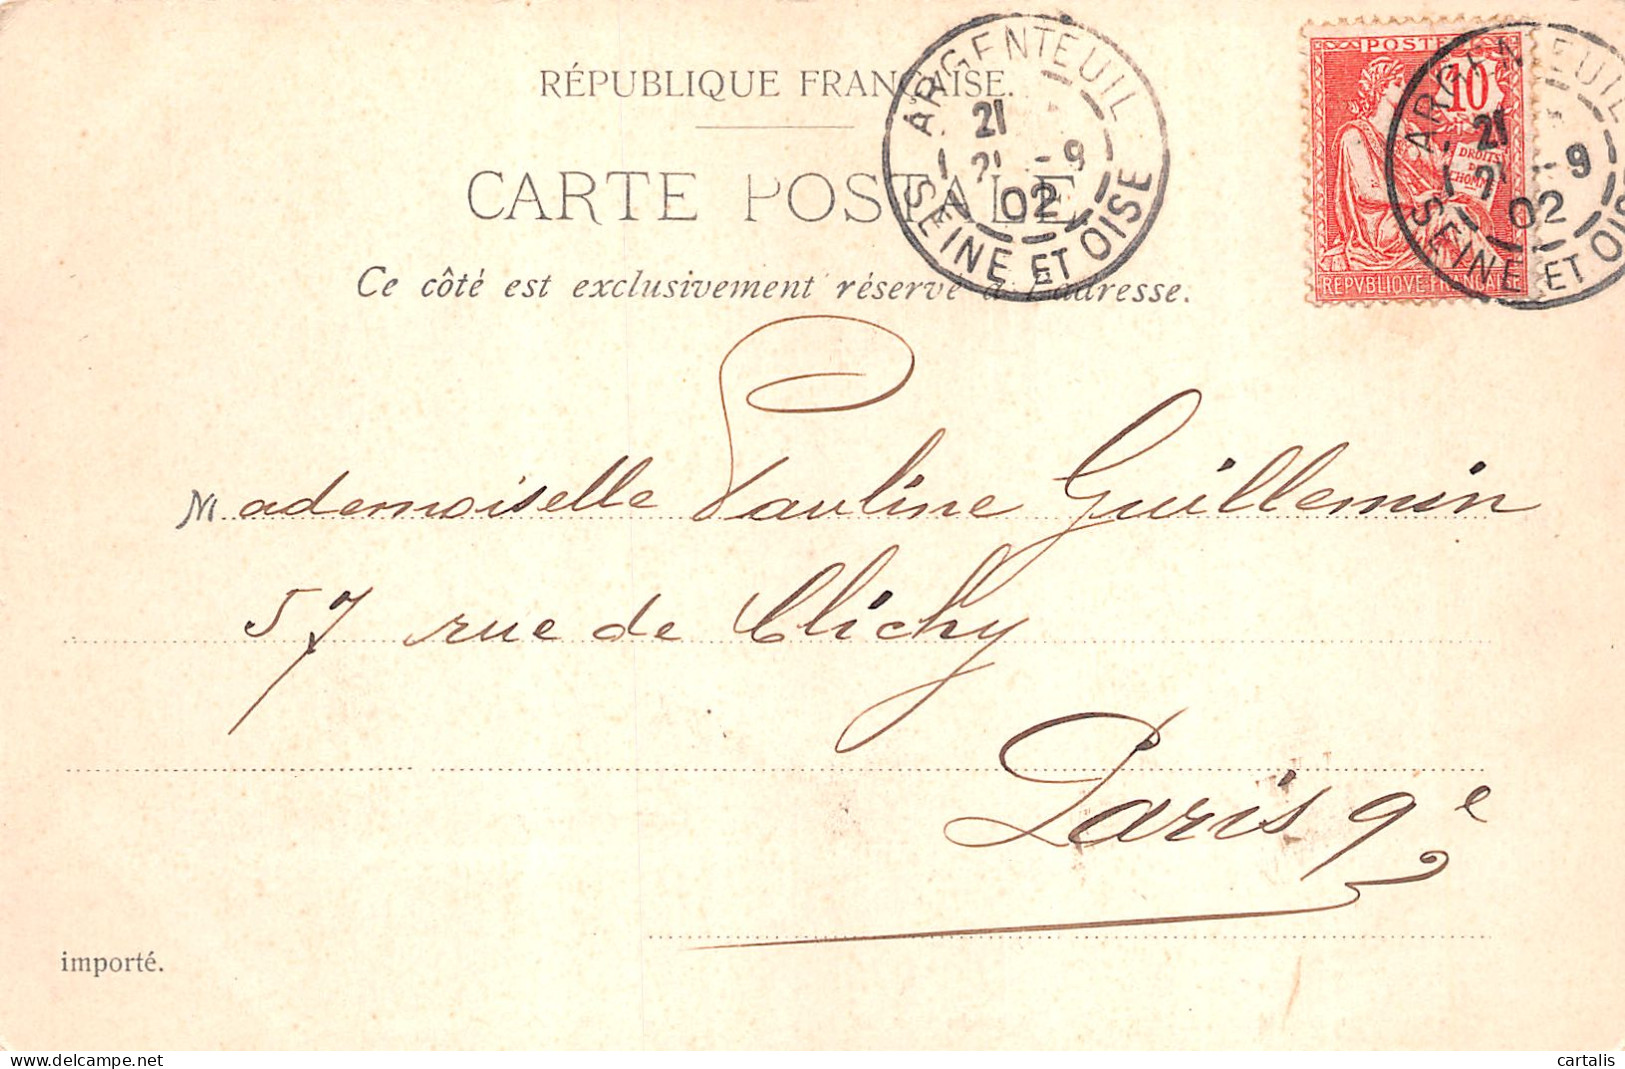 RÉPUBLIQUE FRANÇAISE.
CARTE POSTALE
Ce côté est exclusivement réservé à l'adresse.
ARGENTEUIL
21
-9
02
SEINE ET OISE
POSTES
10
DROITS
DE
L'HOMME
REPVBLIQVE FRANÇAISE
ARGENTEUIL
21
-9
02
SEINE ET OISE
Mademoiselle Pauline Guillemin
57 rue de Clichy
Paris 9e
importé.
cartalis